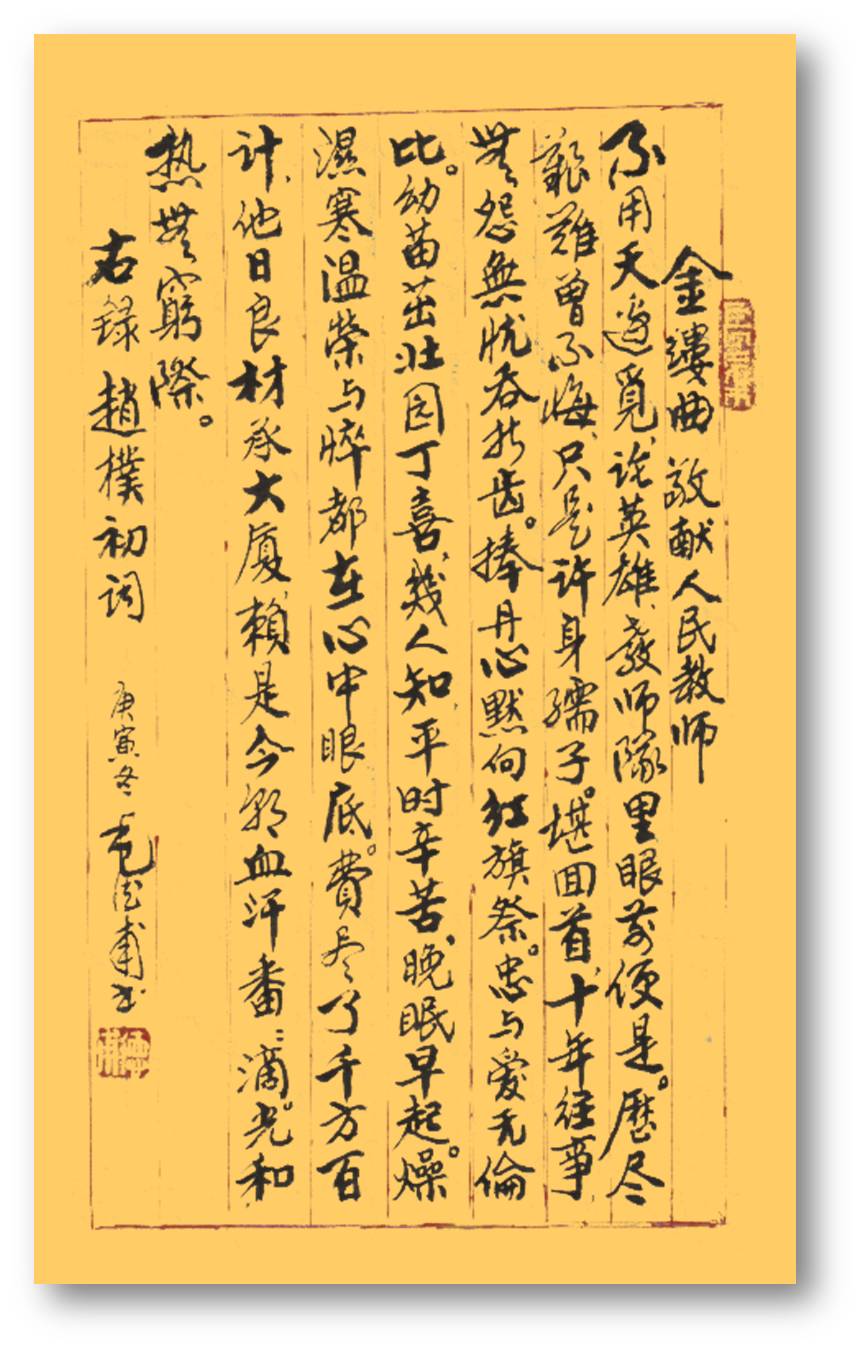 金缕曲 敬献人民教师
不用天边觅，论英雄，教师队里眼前便是。歷尽
艱難曾不悔，只是许身孺子。堪回首，十年往事，
無怨無忧吞折齿。捧丹心默向红旗祭。忠与爱无倫
比。幼苗茁壮园丁喜，幾人知，平时辛苦，晚眠早起。燥
濕寒温荣与悴，都在心中眼底。費尽了千方百
计，他日良材承大厦，賴是今朝血汗番：滴。光和
热無窮際。
右録趙樸初词 庚寅冬